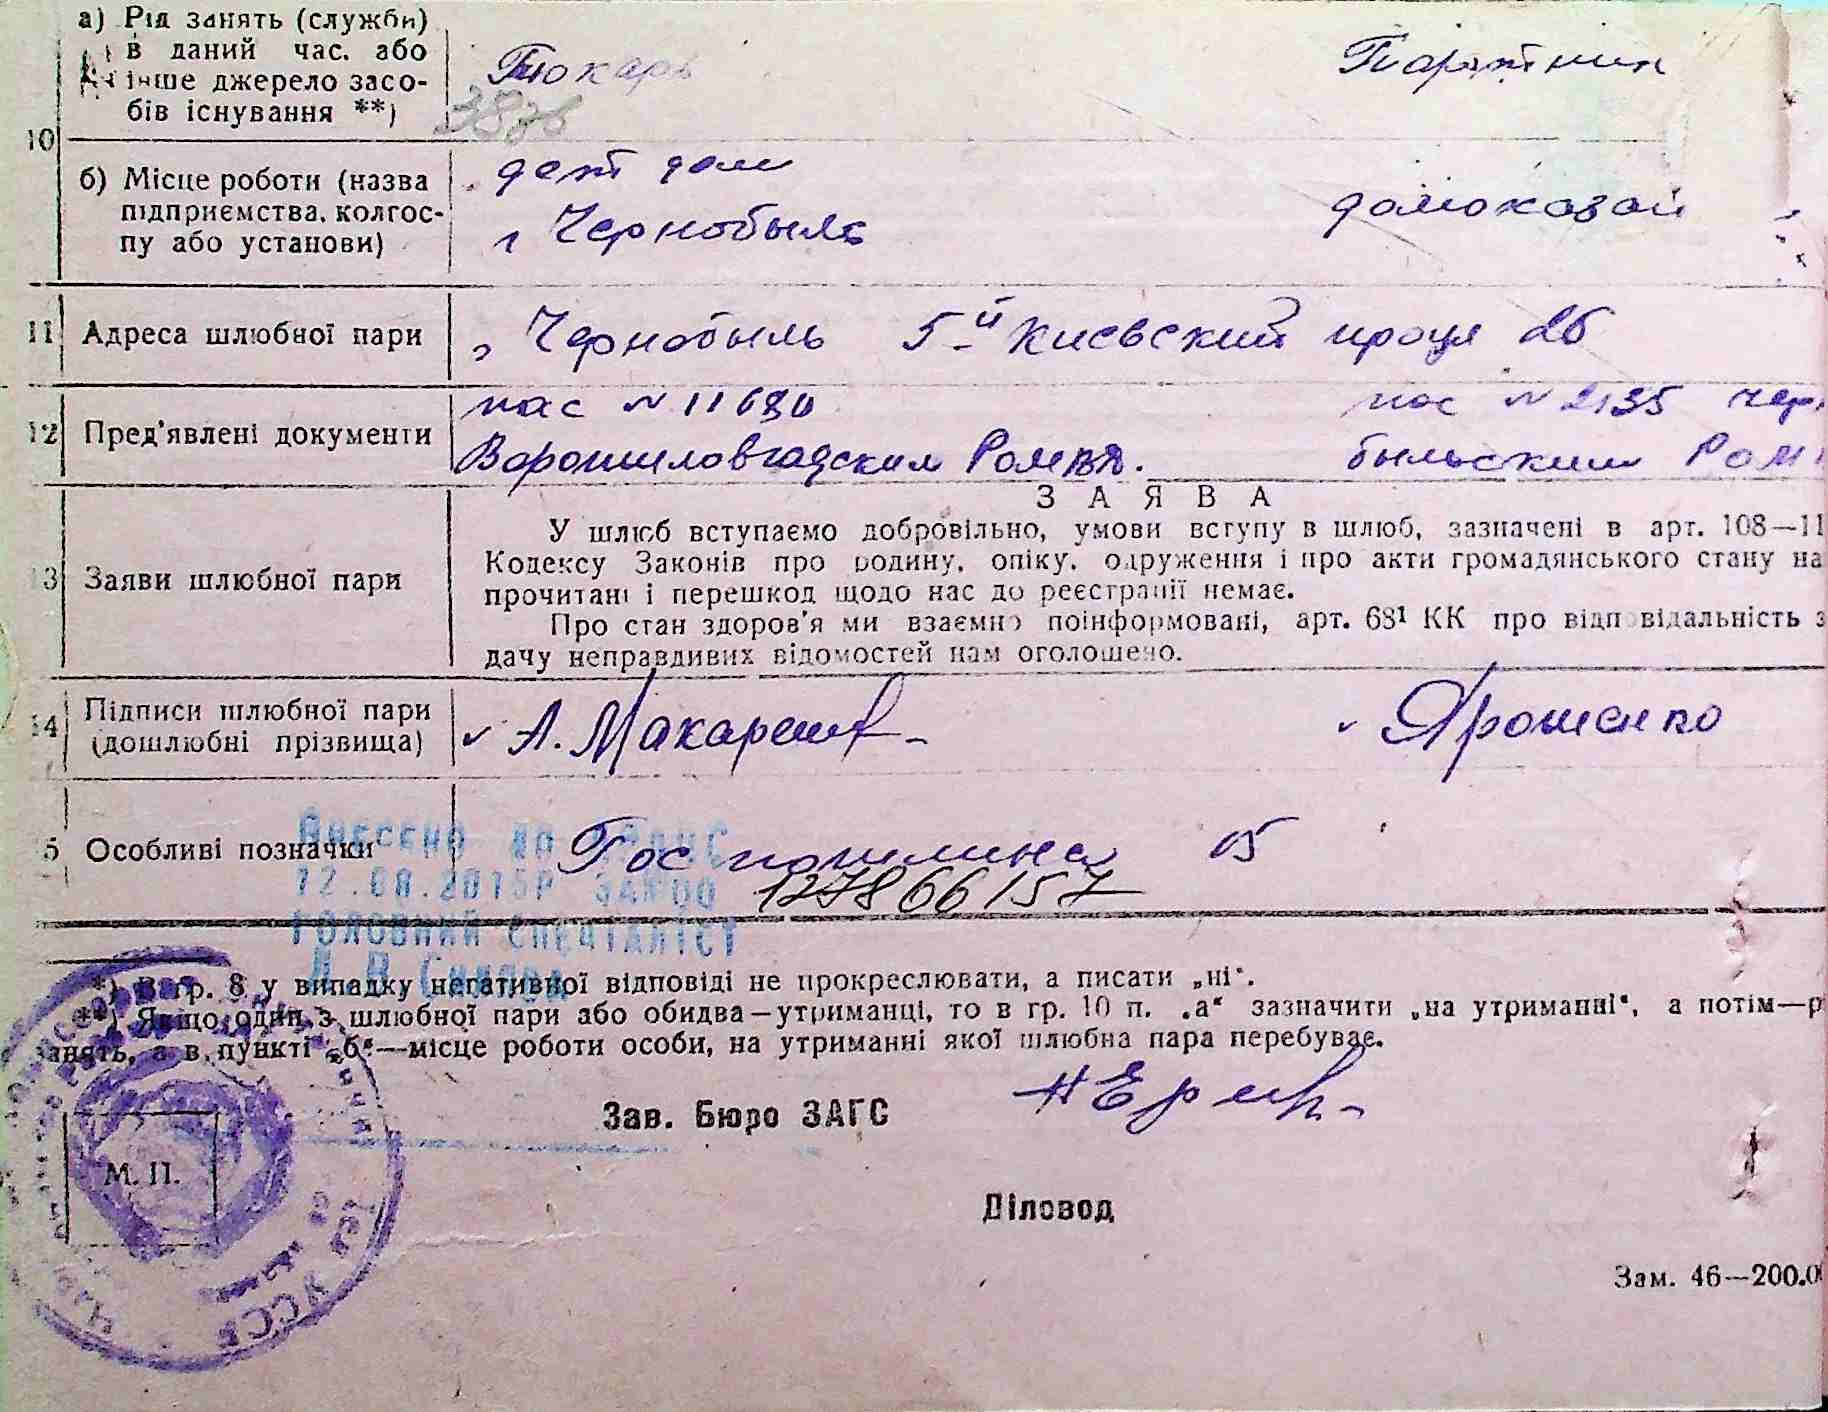 а) Рід занять (служби)
в даний час. або
інше джерело засо-
бів існування **)
Токарь
Портник
3876
10
б) Місце роботи (назва
підприємства, колгос-
пу або установи)
дет дом
г Чернобыль
11 Адреса шлюбної пари
г Чернобыль 5-й Киевский проул 26
12 Пред'явлені документи
пас № 11680
Ворошиловградским
пас № 2135 Черн
быльским
З А Я В А
13 Заяви шлюбної пари
У шлюб вступаємо добровільно, умови вступу в шлюб, зазначені в арт. 108—11
Кодексу Законів про родину, опіку, одруження і про акти громадянського стану на
прочитані і перешкод щодо нас до реєстрації немає.
Про стан здоров'я ми взаємно поінформовані, арт. 68¹ КК про відповідальність з
дачу неправдивих відомостей нам оголошено.
14 Підписи шлюбної пари
(дошлюбні прізвища)
А. Макарен
Ярошенко
5 Особливі позначки
Внесено до
12.08.2015р
Головний спеціаліст
Гос пошлина 15
127866157
*) В гр. 8 у випадку негативної відповіді не прокреслювати, а писати „ні“.
**) Якщо один з шлюбної пари або обидва—утриманці, то в гр. 10 п. „а“ зазначити „на утриманні“, а потім—р
занять, а в пункті „б“—місце роботи особи, на утриманні якої шлюбна пара перебуває.
Зав. Бюро ЗАГС
М. П.
УССР
Діловод
Зам. 46—200.0